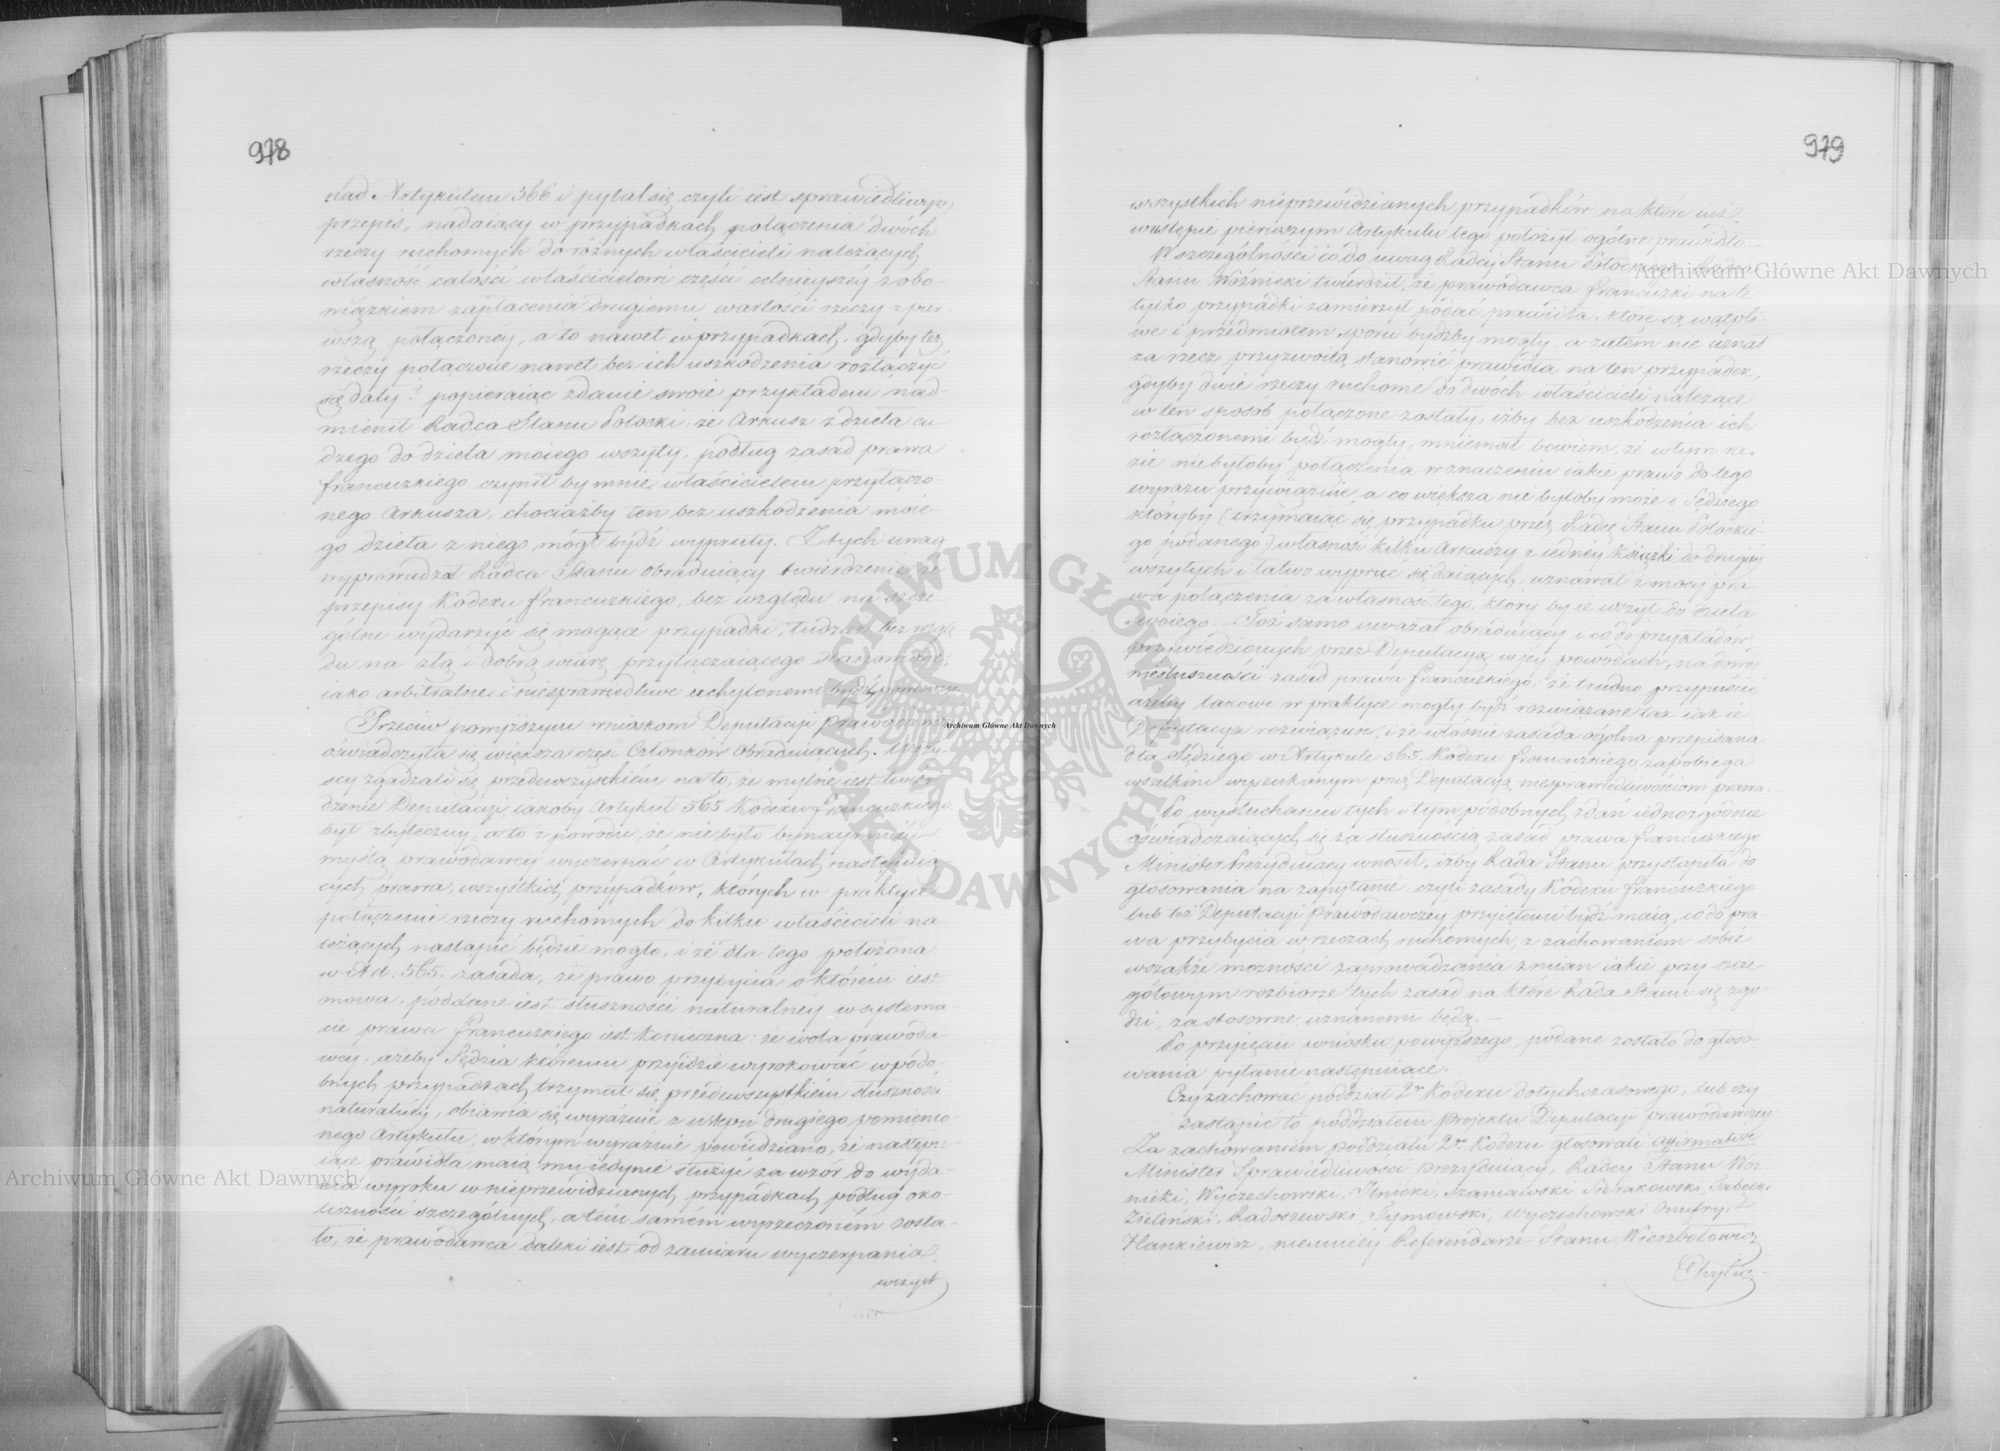 978
nad Artykułem 566 i pytał się, czyli iest sprawiedliwym
przepis, nadaiący w przypadkach połączenia dwóch
rzeczy ruchomych do różnych właścicieli należących
własność całości właścicielowi części celnieyszéy z obo-
wiązkiem zapłacenia drugiemu wartości rzeczy z pier-
wszą połączonéy, a to nawet w przypadkach, gdyby też
rzeczy połączone nawet bez ich uszkodzenia rozłączyć
się dały? popieraiąc zdanie swoie przykładem nad-
mienił Radca Stanu Potocki, że Arkusz z dzieła cu-
dzego do dzieła moiego wszyty, podług zasad prawa
francuzkiego czynił by mnie właścicielem przyłączo-
nego Arkusza, chociażby ten bez uszkodzenia moie-
go dzieła z niego mógł bydź wypruty. Z tych uwag
wyprowadzał Radca Stanu obraduiący twierdzenie, że
przepisy Kodexu francuzkiego, bez względu na szcze-
gólne wydarzyć się mogące przypadki, tudzież bez wzglę-
du na złą i dobrą wiarę przyłączaiącego stanowiące,
iako arbitralne i niesprawiedliwe uchylonemi bydź powinny.
Przeciw powyższym wnioskom Deputacyi Prawodawczéy
oświadczyła się większa część Członków obraduiących. Wszy-
scy zgadzali się przedewszystkiém na to, że mylne iest twier-
dzenie Deputacyi iakoby Artykuł 565 Kodexu francuzkiego
był zbyteczny, a to z powodu, że nie było bynaymniéy
myślą prawodawcy wyczerpać w Artykułach następuią-
cych prawa, wszystkich przypadków, których w praktyce
połączenie rzeczy ruchomych do kilku właścicieli na-
leżących nastąpić będzie mogło, i że dla tego położona
w Art. 565. zasada, że prawo przybycia o którém iest
mowa, poddane iest słuszności naturalnéy w systema-
cie prawa francuzkiego iest konieczna: że wola prawoda-
wcy, ażeby Sędzia któremu przyidzie wyrokować w podo-
bnych przypadkach trzymał się przedewszystkiém słuszności
naturalnéy, obiawia się wyraźnie z ustępu drugiego pomienio-
nego Artykułu, w którym wyraźnie powiedziano, że następu-
iące prawidła maią mu iedynie służyć za wzór do wyda-
nia wyroku w nieprzewidzianych przypadkach podług oko-
liczności szczególnych, a tém samém wyrzeczoném zosta-
ło, że prawodawca daleki iest od zamiaru wyczerpania
wszyst
979
wszystkich nieprzewidzianych przypadków na które iuż
w ustępie pierwszym Artykułu tego położył ogólne prawidło.—
W szczególności co do uwag Radcy Stanu Potockiego Radca
Stanu Woźnicki twierdził, że prawodawca francuzki na te
tylko przypadki zamierzył podać prawidła, które są wątpli-
we i przedmiotem sporu bydźby mogły, a zatém nie uznał
za rzecz przyzwoitą stanowić prawidła na ten przypadek,
gdyby dwie rzeczy ruchome do dwóch właścicieli należące
w ten sposób połączone zostały, iżby bez uszkodzenia ich
rozłączonemi bydź mogły, mniemał bowiem, że w tym ra-
zie niebyłoby połączenia w znaczeniu iakie prawo do tego
wyrazu przywiązuie, a co większa nie byłoby może i Sędziego
któryby (trzymaiąc się przypadku przez Radcę Stanu Potockie-
go podanego) własność kilku Arkuszy z iednéy Książki do drugiéy
wszytych i łatwo wypruć się daiących, uznawał z mocy pra-
wa połączenia za własność tego, który by ie wszył do dzieła
swoiego. — Toż samo uważał obraduiący i co do przykładów
przywiedzionych przez Deputacyą w iéy powodach, na dowód
niesłuszności zasad prawa francuzkiego, że trudno przypuścić
ażeby takowe w praktyce mogły bydź rozwiązane tak iak ie
Deputacya rozwiązuie, i że właśnie zasada ogólna przepisana
dla Sędziego w Artykule 565. Kodexu francuzkiego zapobiega
wszelkim wyszukanym przez Deputacyą niesprawiedliwościom prawa.
Po wysłuchaniu tych i tym podobnych zdań iednozgodnie
oświadczaiących się za słusznością zasad prawa francuzkiego
Minister Prezyduiący wnosił, iżby Rada Stanu przystąpiła do
głosowania na zapytanie: czyli zasady Kodexu francuzkiego
lub też Deputacyi Prawodawczéy przyiętemi bydź maią, co do pra-
wa przybycia w rzeczach ruchomych, z zachowaniem sobie
wszakże możności zaprowadzania zmian iakie przy szcze-
gółowym rozbiorze tych zasad na które Rada Stanu się zgo-
dzi, za stosowne uznanemi będą. —
Po przyięciu wniosku powyższego, podane zostało do głoso-
wania pytanie następuiące.
Czy zachować poddział 2gi Kodexu dotychczasowego, lub czy
zastąpić to poddziałem projektu Deputacyi prawodawczéy.
Za zachowaniem poddziału 2go Kodexu głosowali affirmative
Minister Sprawiedliwości Prezyduiący, Radcy Stanu Woź-
nicki, Wyczechowski, Ilnicki, Szaniawski, Sierakowski, Łubecki
Zieliński, Radoszewski, Tymowski, Wyczechowski Onufry,
Hankiewicz, niemniéy Referendarze Stanu Wierzbołowicz
Chylicz
Archiwum Główne Akt Dawnych
Archiwum Główne Akt Dawnych
Archiwum Główne Akt Dawnych
ARCHIWUM GŁÓWNE AKT DAWNYCH